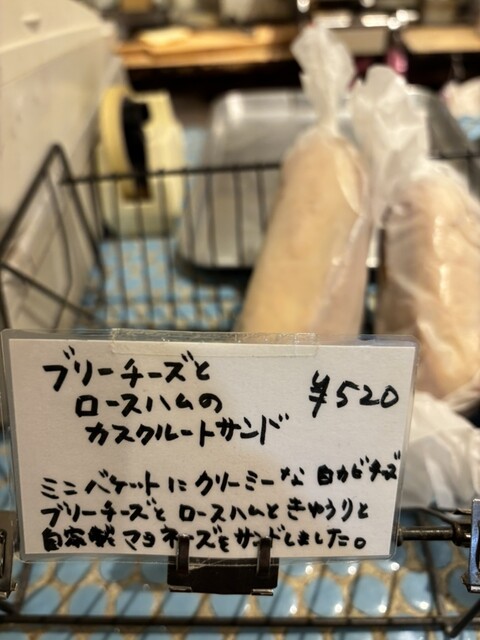 ブリーチーズと
ロースハムの
カスクルートサンド
¥520
ミニバケットにクリーミーな白カビチーズ
ブリーチーズとロースハムときゅうりと
自家製マヨネーズをサンドしました。